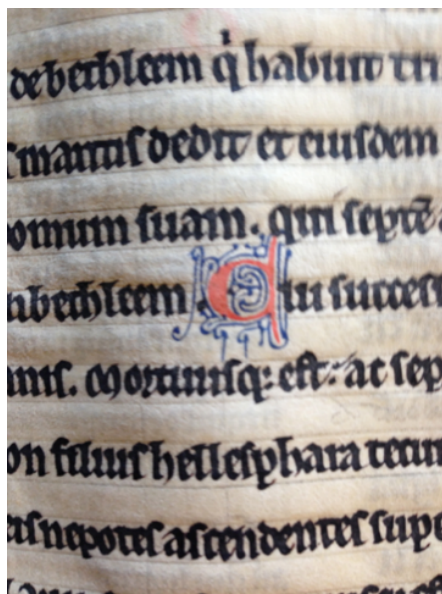 de bethleem q̇ habuit tri
maritis dedit et eiusdem
omum suam. qui septē
bethleem Cui success
annis. Mortuusq; est: ac sep
on filius hellesphara tecun
nepotes ascendentes supe